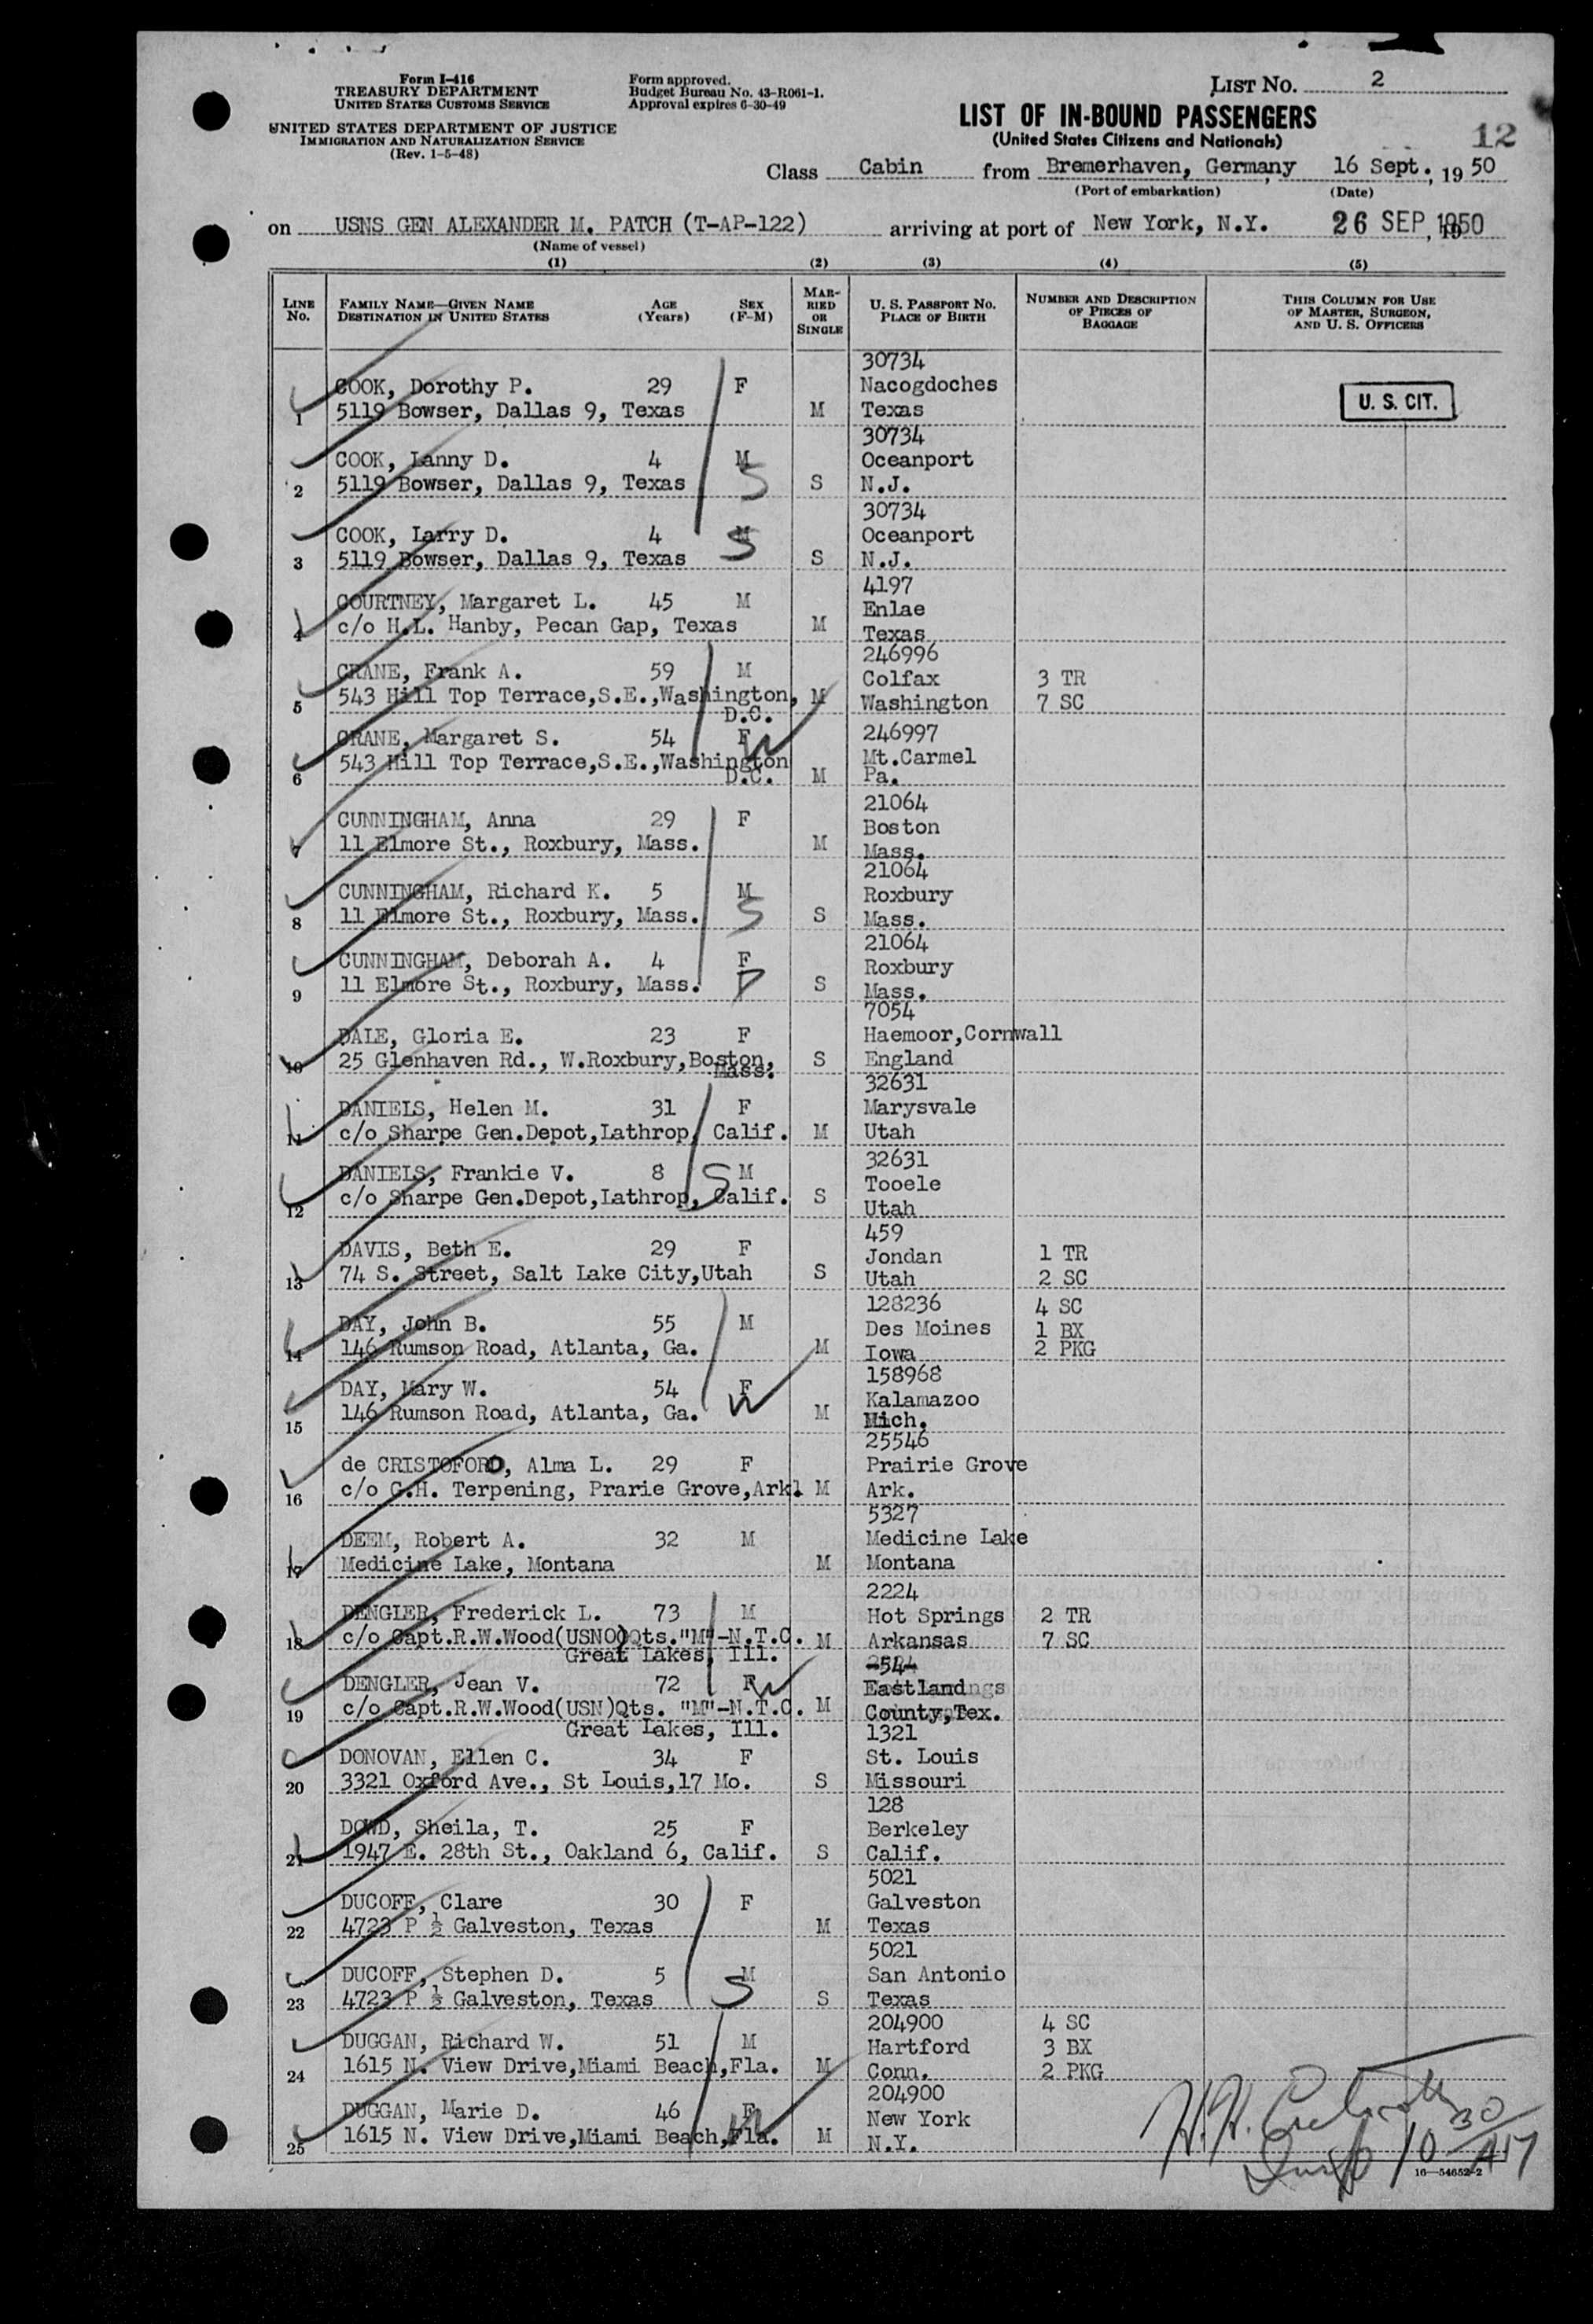 Form I-416
TREASURY DEPARTMENT
UNITED STATES CUSTOMS SERVICE
UNITED STATES DEPARTMENT OF JUSTICE
IMMIGRATION AND NATURALIZATION SERVICE
(Rev. 1-5-48)
Form approved.
Budget Bureau No. 43-R061-1.
Approval expires 6-30-49
LIST NO. 2
LIST OF IN-BOUND PASSENGERS
(United States Citizens and Nationals)
12
Class Cabin from Bremerhaven, Germany, 16 Sept., 19 50
(Port of embarkation) (Date)
on USNS GEN ALEXANDER M. PATCH (T-AP-122) arriving at port of New York, N.Y. 26 SEP 1950, 19
(Name of vessel)
(1) (2) (3) (4) (5)
LINE NO. FAMILY NAME—GIVEN NAME DESTINATION IN UNITED STATES AGE (YEARS) SEX (F-M) MARRIED OR SINGLE U. S. PASSPORT NO. PLACE OF BIRTH NUMBER AND DESCRIPTION OF PIECES OF BAGGAGE THIS COLUMN FOR USE OF MASTER, SURGEON, AND U. S. OFFICERS
30734
COOK, Dorothy P. 29 F Nacogdoches
1 5119 Bowser, Dallas 9, Texas M Texas
U. S. CIT.
30734
COOK, Lanny D. 4 M Oceanport
2 5119 Bowser, Dallas 9, Texas S S N.J.
30734
COOK, Larry D. 4 M Oceanport
3 5119 Bowser, Dallas 9, Texas S S N.J.
4197
COURTNEY, Margaret L. 45 M Enlae
4 c/o H.L. Hanby, Pecan Gap, Texas M Texas
246996
CRANE, Frank A. 59 M Colfax 3 TR
5 543 Hill Top Terrace,S.E.,Washington, M Washington 7 SC
D.C.
246997
CRANE, Margaret S. 54 F W Mt.Carmel
6 543 Hill Top Terrace,S.E.,Washington D.C. M Pa.
21064
CUNNINGHAM, Anna 29 F Boston
7 11 Elmore St., Roxbury, Mass. M Mass.
21064
CUNNINGHAM, Richard K. 5 M Roxbury
8 11 Elmore St., Roxbury, Mass. S S Mass.
21064
CUNNINGHAM, Deborah A. 4 F Roxbury
9 11 Elmore St., Roxbury, Mass. D S Mass.
7054
DALE, Gloria E. 23 F Haemoor,Cornwall
10 25 Glenhaven Rd., W.Roxbury,Boston, Mass. S England
32631
DANIELS, Helen M. 31 F Marysvale
11 c/o Sharpe Gen.Depot,Lathrop, Calif. M Utah
32631
DANIELS, Frankie V. 8 S M Tooele
12 c/o Sharpe Gen.Depot,Lathrop, Calif. S Utah
459
DAVIS, Beth E. 29 F Jondan 1 TR
13 74 S. Street, Salt Lake City,Utah S Utah 2 SC
128236 4 SC
DAY, John B. 55 M Des Moines 1 BX
14 146 Rumson Road, Atlanta, Ga. M Iowa 2 PKG
158968
DAY, Mary W. 54 F W Kalamazoo
15 146 Rumson Road, Atlanta, Ga. M Mich.
25546
de CRISTOFORO, Alma L. 29 F Prairie Grove
16 c/o C.H. Terpening, Prarie Grove,Ark. M Ark.
5327
DEEM, Robert A. 32 M Medicine Lake
17 Medicine Lake, Montana M Montana
2224
DENGLER, Frederick L. 73 M Hot Springs 2 TR
18 c/o Capt.R.W.Wood(USNO)Qts."M"-N.T.C. M Arkansas 7 SC
Great Lakes, Ill.
DENGLER, Jean V. 72 F W Eastland
19 c/o Capt.R.W.Wood(USN)Qts. "M"-N.T.C. M County,Tex.
Great Lakes, Ill.
1321
DONOVAN, Ellen C. 34 F St. Louis
20 3321 Oxford Ave., St Louis,17 Mo. S Missouri
128
DOWD, Sheila, T. 25 F Berkeley
21 1947 E. 28th St., Oakland 6, Calif. S Calif.
5021
DUCOFF, Clare 30 F Galveston
22 4723 P ½ Galveston, Texas M Texas
5021
DUCOFF, Stephen D. 5 M San Antonio
23 4723 P ½ Galveston, Texas S S Texas
204900 4 SC
DUGGAN, Richard W. 51 M Hartford 3 BX
24 1615 N. View Drive,Miami Beach,Fla. M Conn. 2 PKG
204900
DUGGAN, Marie D. 46 F W New York
25 1615 N. View Drive,Miami Beach,Fla. M N.Y.
16—54652-2